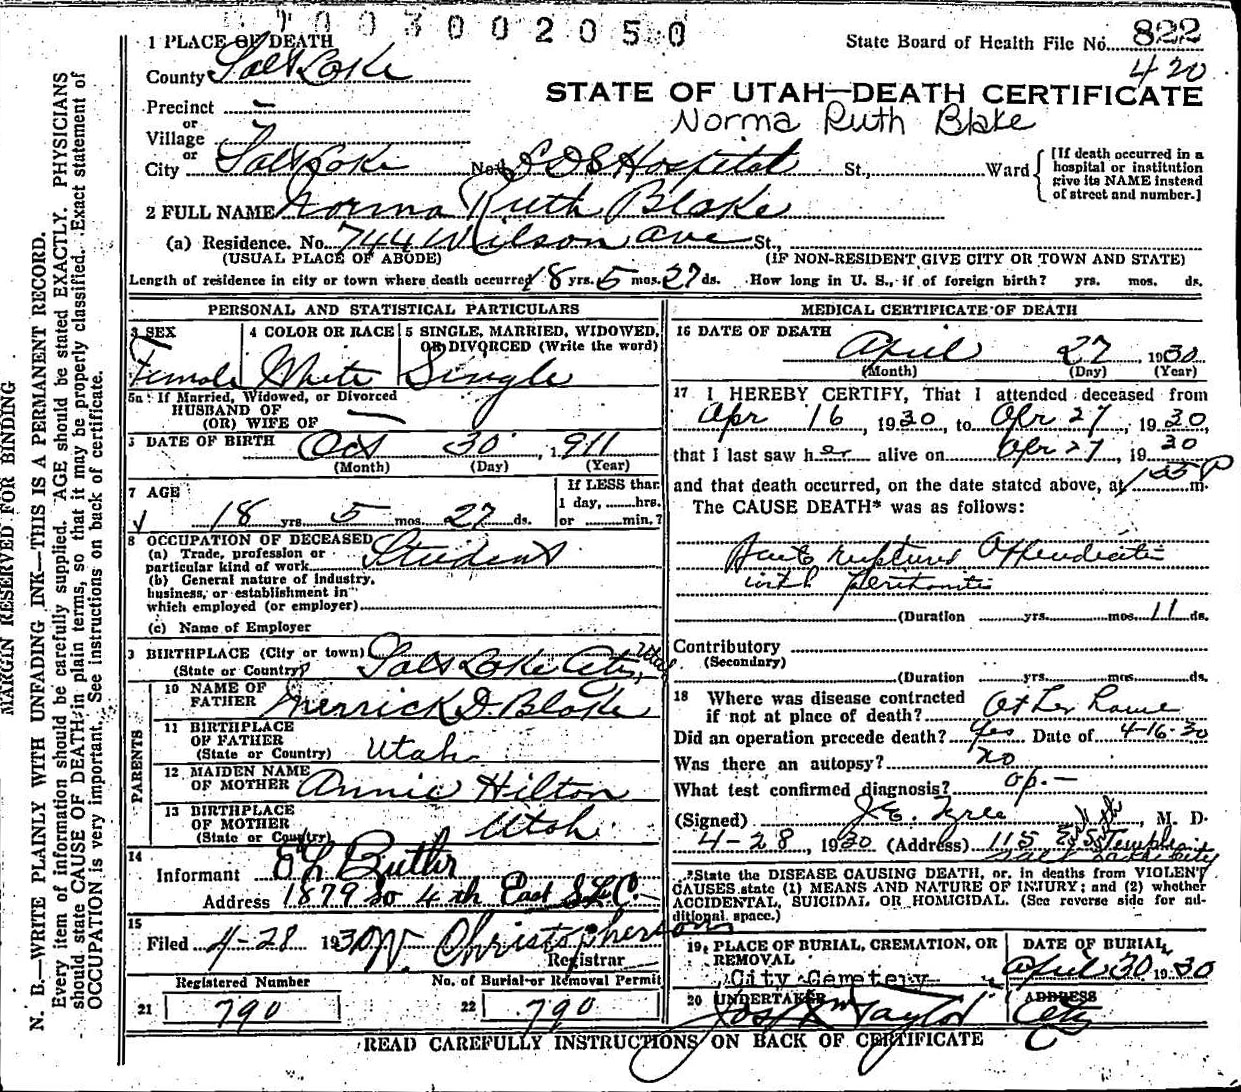 003002050
1 PLACE OF DEATH
State Board of Health File No. 822
420
County Salt Lake
STATE OF UTAH—DEATH CERTIFICATE
Precinct —
Norma Ruth Blake
or
Village
or
City Salt Lake No. LDS Hospital St., Ward
[If death occurred in a hospital or institution give its NAME instead of street and number.]
2 FULL NAME Norma Ruth Blake
(a) Residence. No. 744 Wilson Ave St.,
(USUAL PLACE OF ABODE) (IF NON-RESIDENT GIVE CITY OR TOWN AND STATE)
Length of residence in city or town where death occurred 18 yrs. 5 mos. 27 ds. How long in U. S., if of foreign birth? yrs. mos. ds.
PERSONAL AND STATISTICAL PARTICULARS
3 SEX
Female
4 COLOR OR RACE
White
5 SINGLE, MARRIED, WIDOWED,
OR DIVORCED (Write the word)
Single
5a If Married, Widowed, or Divorced
HUSBAND OF
(OR) WIFE OF —
6 DATE OF BIRTH Oct 30, 1911
(Month) (Day) (Year)
7 AGE
18 yrs. 5 mos. 27 ds.
If LESS than
1 day, hrs.
or min.?
8 OCCUPATION OF DECEASED
(a) Trade, profession or
particular kind of work Student
(b) General nature of industry,
business, or establishment in
which employed (or employer)
(c) Name of Employer
9 BIRTHPLACE (City or town) Salt Lake City, Utah
(State or Country)
PARENTS
10 NAME OF
FATHER Merrick D. Blake
11 BIRTHPLACE
OF FATHER
(State or Country) Utah
12 MAIDEN NAME
OF MOTHER Annie Hilton
13 BIRTHPLACE
OF MOTHER
(State or Country) Utah
14
Informant E L Butler
Address 1879 So 4th East S.L.C.
15
Filed 4-28 1930 W. Christopherson
Registrar
Registered Number No. of Burial or Removal Permit
21 790 22 790
MEDICAL CERTIFICATE OF DEATH
16 DATE OF DEATH
April 27, 1930
(Month) (Day) (Year)
17 I HEREBY CERTIFY, That I attended deceased from
Apr 16, 1930, to Apr 27, 1930,
that I last saw her alive on Apr 27, 1930
and that death occurred, on the date stated above, at 1 55 P m.
The CAUSE DEATH* was as follows:
ruptured Appendicitis
with peritonitis
(Duration yrs. mos. 11 ds.
Contributory
(Secondary)
(Duration yrs. mos. ds.
18 Where was disease contracted
if not at place of death? At her home
Did an operation precede death? Yes Date of 4-16-30
Was there an autopsy? no
What test confirmed diagnosis? op.—
(Signed) J.E. Tyree, M. D.
4-28, 1930 (Address) 115 East So Temple
Salt Lake City
*State the DISEASE CAUSING DEATH, or, in deaths from VIOLENT
CAUSES state (1) MEANS AND NATURE OF INJURY; and (2) whether
ACCIDENTAL, SUICIDAL OR HOMICIDAL. (See reverse side for ad-
ditional space.)
19 PLACE OF BURIAL, CREMATION, OR
REMOVAL
City Cemetery
DATE OF BURIAL
April 30 1930
20 UNDERTAKER
Jos Wm Taylor
ADDRESS
City
READ CAREFULLY INSTRUCTIONS ON BACK OF CERTIFICATE
MARGIN RESERVED FOR BINDING
N. B.—WRITE PLAINLY WITH UNFADING INK—THIS IS A PERMANENT RECORD.
Every item of information should be carefully supplied. AGE should be stated EXACTLY. PHYSICIANS
should state CAUSE OF DEATH in plain terms, so that it may be properly classified. Exact statement of
OCCUPATION is very important. See instructions on back of certificate.